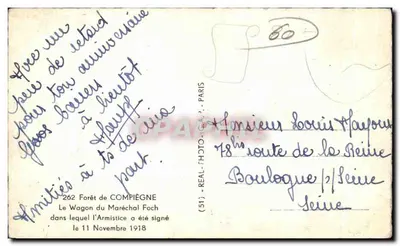 Avec un
peu de retard
pour ton anniversaire
Gros baisers
à bientôt
Amitiés à ts de ma
part.
262 Forêt de COMPIÈGNE
Le Wagon du Maréchal Foch
dans lequel l'Armistice a été signé
le 11 Novembre 1918
(51). - REAL-PHOTO - PARIS
60
Monsieur Louis
78 bis route de la Reine
Boulogne s/Seine
Seine